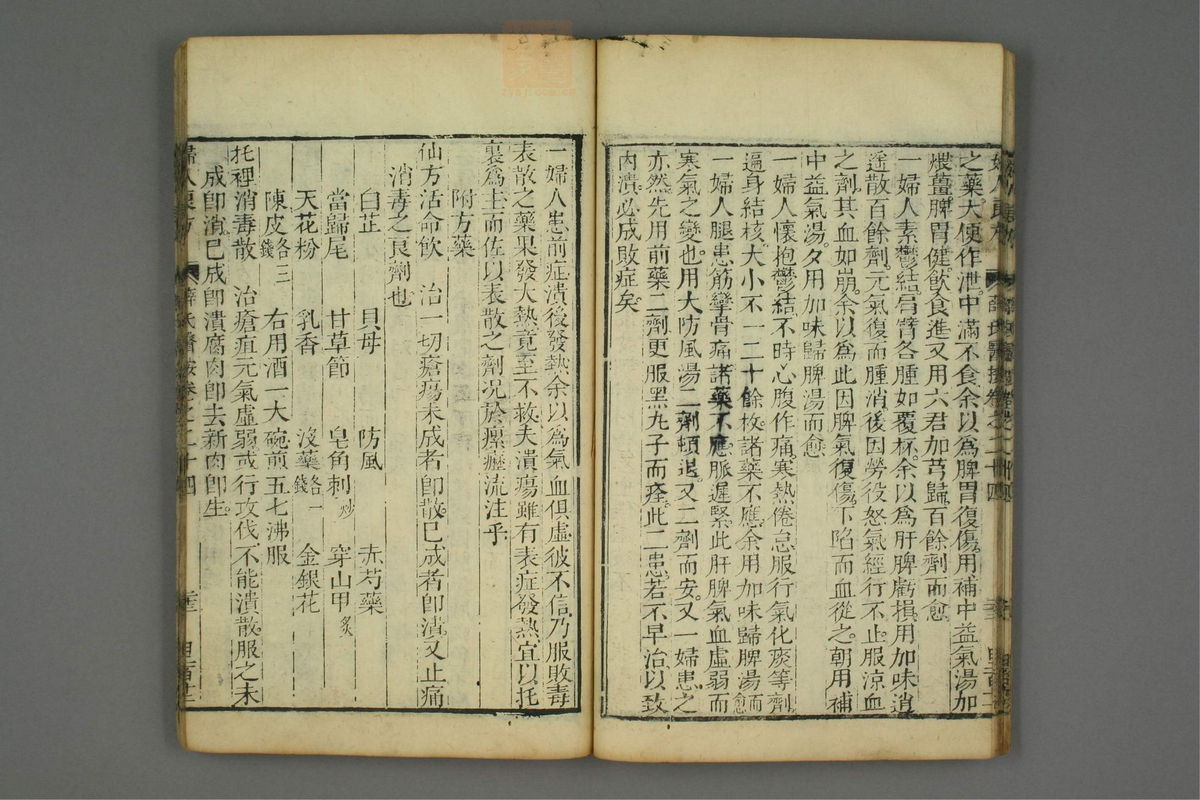 之藥大便作泄中滿不食余以爲脾胃復傷用補中益氣湯加
煨薑脾胃健飲食進又用六君加芎歸百餘劑而愈
一婦人素鬱結肩臂各腫如覆杯余以爲肝脾虧損用加味逍
遥散百餘劑元氣復而腫消後因勞役怒氣經行不止服凉血
之劑其血如崩余以爲此因脾氣復傷下陷而血從之朝用補
中益氣湯夕用加味歸脾湯而愈
一婦人懷抱鬱結不時心腹作痛寒熱倦怠服行氣化痰等劑
遍身結核大小不一二十餘枚諸藥不應余用加味歸脾湯而愈
一婦人腿患筋攣骨痛諸藥不應脈遲緊此肝脾氣血虛弱而
寒氣之變也用大防風湯二劑頓退又二劑而安又一婦患之
亦然先用前藥二劑更服黑丸子而痊此二患若不早治以致
內潰必成敗症矣
一婦人患前症潰後發熱余以爲氣血俱虛彼不信乃服敗毒
表散之藥果發大熱竟至不救夫潰瘍雖有表症發熱宜以托
裏爲主而佐以表散之劑况於瘰癧流注乎
附方藥
仙方活命飲　治一切瘡瘍未成者卽散已成者卽潰又止痛
消毒之良劑也
白芷　貝母　防風　赤芍藥
當歸尾　甘草節　皂角刺炒　穿山甲炙
天花粉　乳香　沒藥各一錢　金銀花
陳皮各三錢　右用酒一大碗煎五七沸服
托裡消毒散　治瘡疽元氣虛弱或行攻伐不能潰散服之未
成卽消已成卽潰腐肉卽去新肉卽生
婦人良方　薛氏醫按卷之二十四